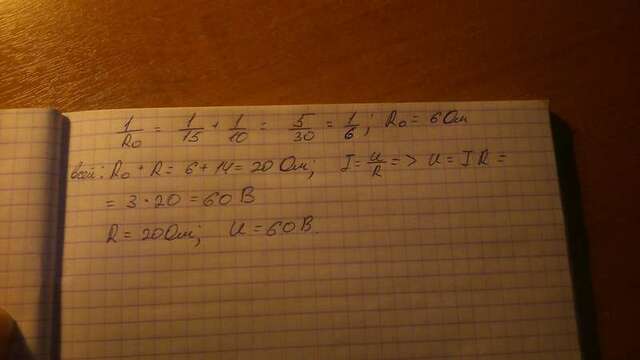 1/R₀ = 1/15 + 1/10 = 5/30 = 1/6; R₀ = 6 Ом
всей: R₀ + R = 6 + 14 = 20 Ом; I = u/R => u = IR =
= 3 · 20 = 60 В
R = 20 Ом; u = 60 В.